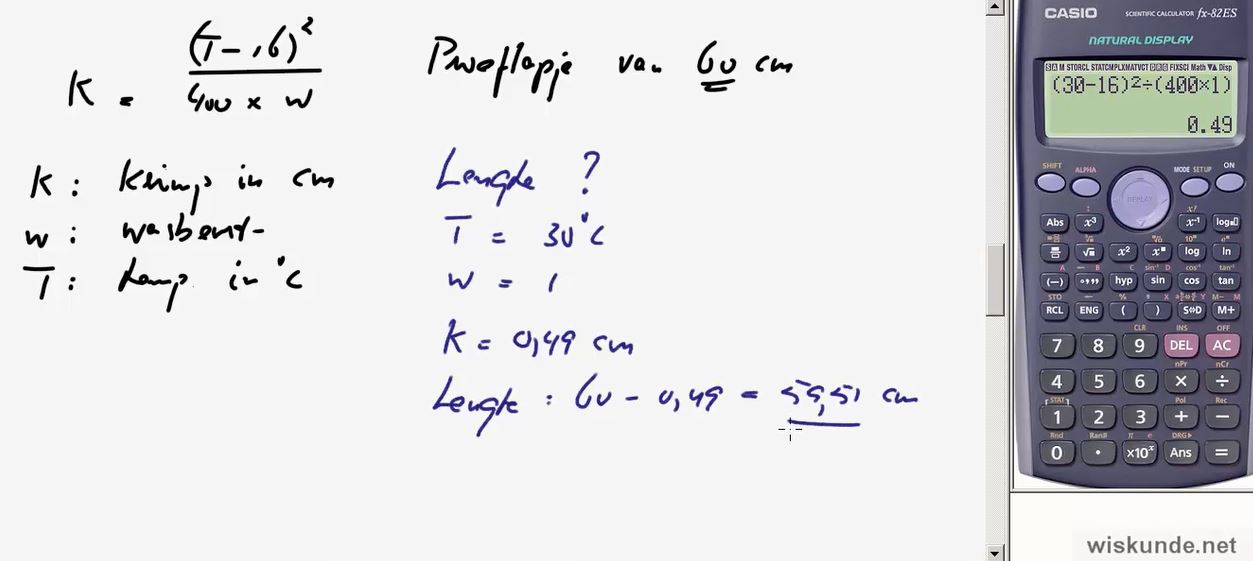 K = (T - 16)² / 400 × w
Proeflapje van 60 cm
K : Krimp in cm
w : wasbeurt
T : temp in °C
Lengte ?
T = 30°C
w = 1
K = 0,49 cm
Lengte : 60 - 0,49 = 59,51 cm
CASIO SCIENTIFIC CALCULATOR fx-82ES
NATURAL DISPLAY
(30-16)²÷(400×1)
0.49
SHIFT ALPHA MODE SETUP ON
DISPLAY
Abs x³ x⁻¹ log
√ x² log ln
(−) hyp sin cos tan
STO
RCL ENG ( ) S⇔D M+
CLR INS OFF
7 8 9 DEL AC
nPr nCr
4 5 6 × ÷
[STAT] Pol Rec
1 2 3 + −
Rnd Ran# π e DRG▶
0 . ×10ˣ Ans =
wiskunde.net